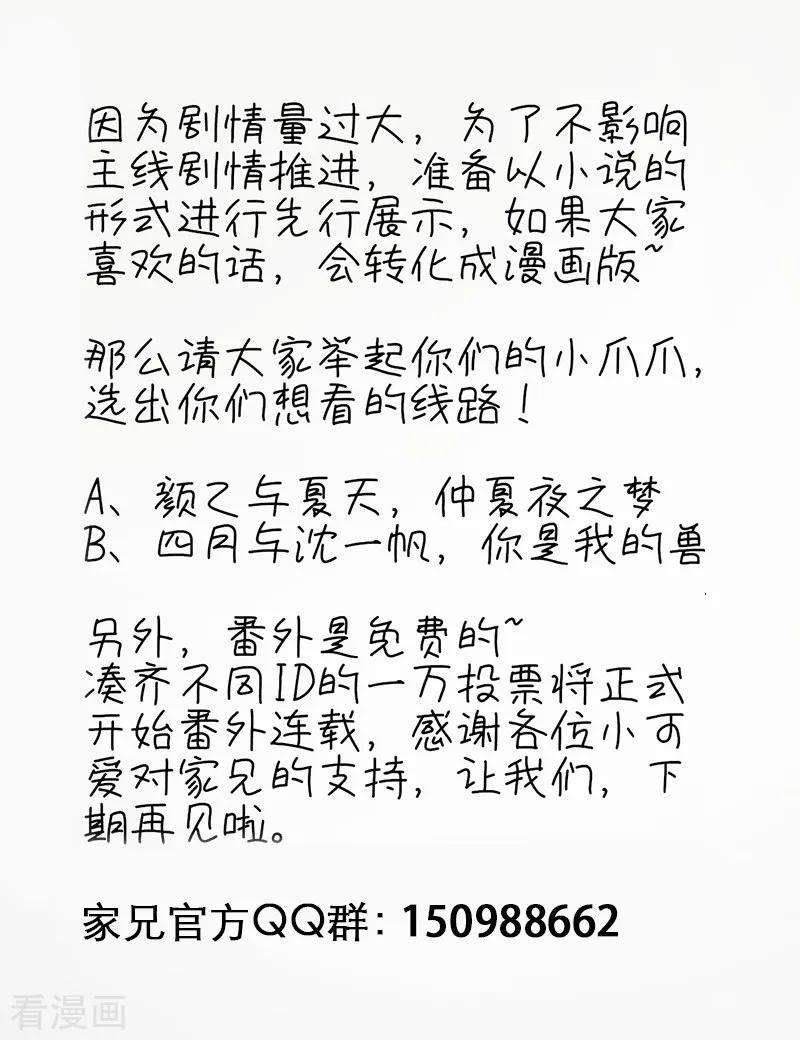 因为剧情量过大，为了不影响
主线剧情推进，准备以小说的
形式进行先行展示，如果大家
喜欢的话，会转化成漫画版~
那么请大家举起你们的小爪爪，
选出你们想看的线路！
A、颜乙与夏天，仲夏夜之梦
B、四月与沈一帆，你是我的兽
另外，番外是免费的~
凑齐不同ID的一万投票将正式
开始番外连载，感谢各位小可
爱对家兄的支持，让我们，下
期再见啦。
家兄官方QQ群：150988662
看漫画